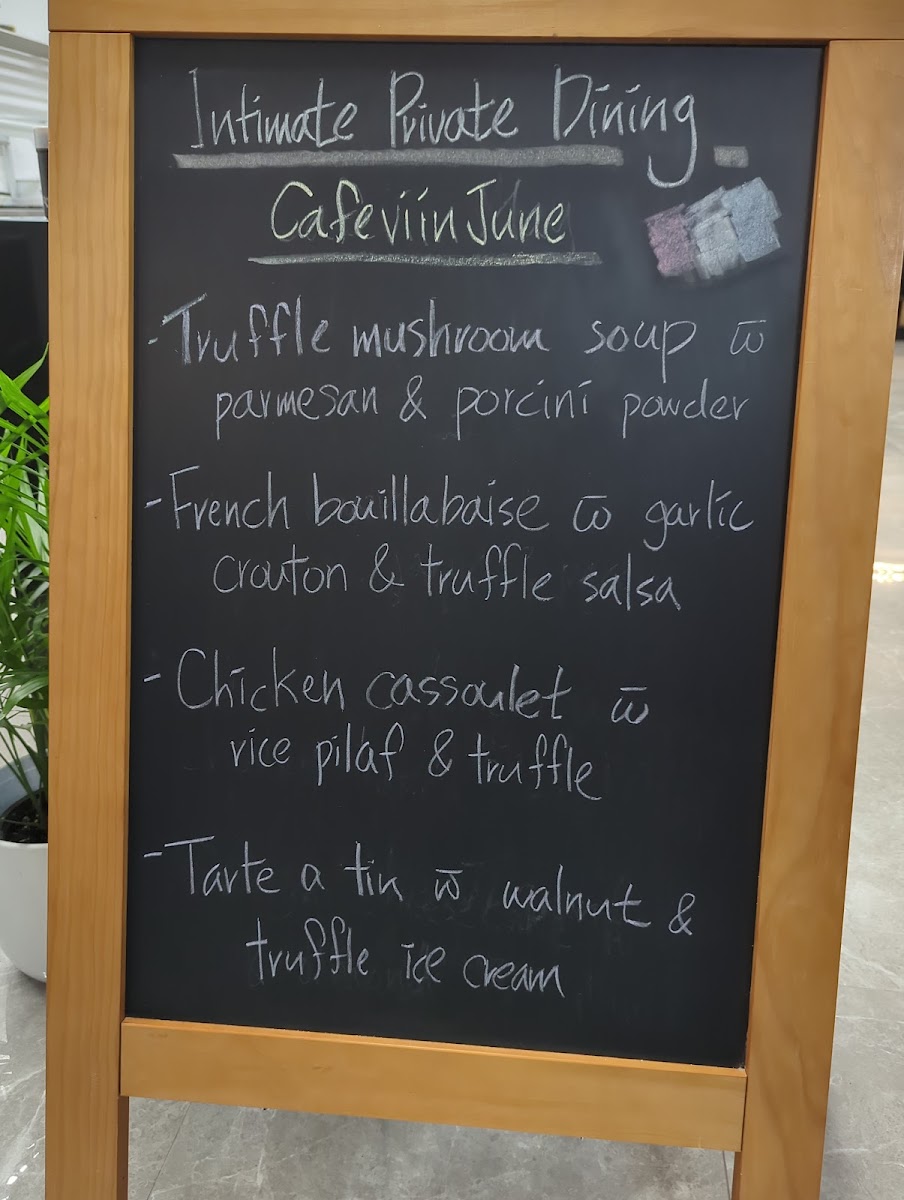 Intimate Private Dining
CafeviinJune
-Truffle mushroom soup w̅
parmesan & porcini powder
-French bouillabaise w̅ garlic
crouton & truffle salsa
-Chicken cassoulet w̅
rice pilaf & truffle
-Tarte a tin w̅ walnut &
truffle ice cream